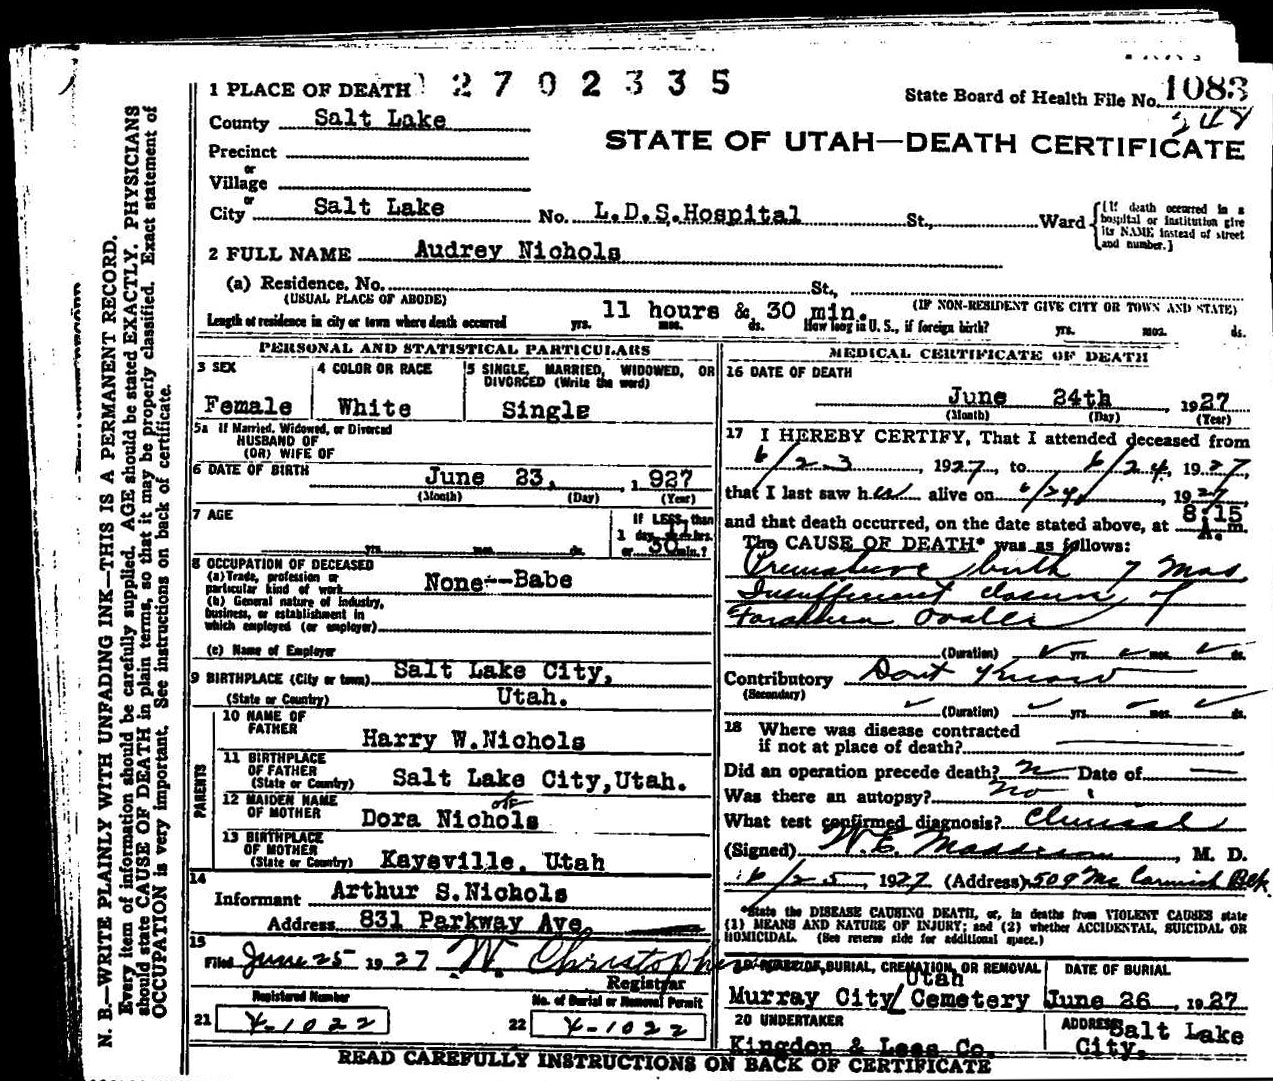 1 PLACE OF DEATH 2702335
State Board of Health File No. 1083
248
County Salt Lake
STATE OF UTAH—DEATH CERTIFICATE
Precinct
or
Village
or
City Salt Lake No. L.D.S.Hospital St., Ward
{[If death occurred in a
hospital or institution give
its NAME instead of street
and number.]
2 FULL NAME Audrey Nichols
(a) Residence. No. St.,
(USUAL PLACE OF ABODE) (IF NON-RESIDENT GIVE CITY OR TOWN AND STATE)
11 hours & 30 min.
Length of residence in city or town where death occurred yrs. mos. ds. How long in U. S., if foreign birth? yrs. mos. ds.
PERSONAL AND STATISTICAL PARTICULARS
3 SEX 4 COLOR OR RACE 5 SINGLE, MARRIED, WIDOWED, OR
DIVORCED (Write the word)
Female White Single
5a If Married, Widowed, or Divorced
HUSBAND OF
(OR) WIFE OF
6 DATE OF BIRTH June 23, 1927
(Month) (Day) (Year)
7 AGE If LESS than
1 day, hrs.
yrs. mos. ds. or 30 min.?
8 OCCUPATION OF DECEASED
(a) Trade, profession or
particular kind of work None--Babe
(b) General nature of industry,
business, or establishment in
which employed (or employer)
(c) Name of Employer
9 BIRTHPLACE (City or town) Salt Lake City,
(State or Country) Utah.
PARENTS
10 NAME OF
FATHER Harry W.Nichols
11 BIRTHPLACE
OF FATHER
(State or Country) Salt Lake City,Utah.
12 MAIDEN NAME
OF MOTHER Dora Nichols
ok
13 BIRTHPLACE
OF MOTHER
(State or Country) Kaysville, Utah
14
Informant Arthur S.Nichols
Address 831 Parkway Ave
15
Filed June 25 1927 W. Christopher
Registrar
Registered Number No. of Burial or Removal Permit
21 4-1022 22 4-1022
MEDICAL CERTIFICATE OF DEATH
16 DATE OF DEATH
June 24th, 1927
(Month) (Day) (Year)
17 I HEREBY CERTIFY, That I attended deceased from
6/23, 1927, to 6/24, 1927,
that I last saw her alive on 6/24, 1927
and that death occurred, on the date stated above, at 8:15 A. m.
The CAUSE OF DEATH* was as follows:
Premature birth 7 Mos
Insufficient closure of
Foramen Ovalle
(Duration) yrs. mos. ds.
Contributory Dont Know
(Secondary)
(Duration) yrs. mos. ds.
18 Where was disease contracted
if not at place of death?
Did an operation precede death? no Date of
Was there an autopsy? no
What test confirmed diagnosis? Clinical
(Signed) W.E. Maddison, M. D.
6/25, 1927 (Address) 509 McCormick Blk
*State the DISEASE CAUSING DEATH, or, in deaths from VIOLENT CAUSES state
(1) MEANS AND NATURE OF INJURY; and (2) whether ACCIDENTAL, SUICIDAL OR
HOMICIDAL. (See reverse side for additional space.)
19 PLACE OF BURIAL, CREMATION, OR REMOVAL DATE OF BURIAL
Utah
Murray City/ Cemetery June 26, 1927
20 UNDERTAKER ADDRESS Salt Lake
Kingdon & Lees Co. City.
READ CAREFULLY INSTRUCTIONS ON BACK OF CERTIFICATE
N. B.—WRITE PLAINLY WITH UNFADING INK—THIS IS A PERMANENT RECORD.
Every item of information should be carefully supplied. AGE should be stated EXACTLY. PHYSICIANS
should state CAUSE OF DEATH in plain terms, so that it may be properly classified. Exact statement of
OCCUPATION is very important. See instructions on back of certificate.